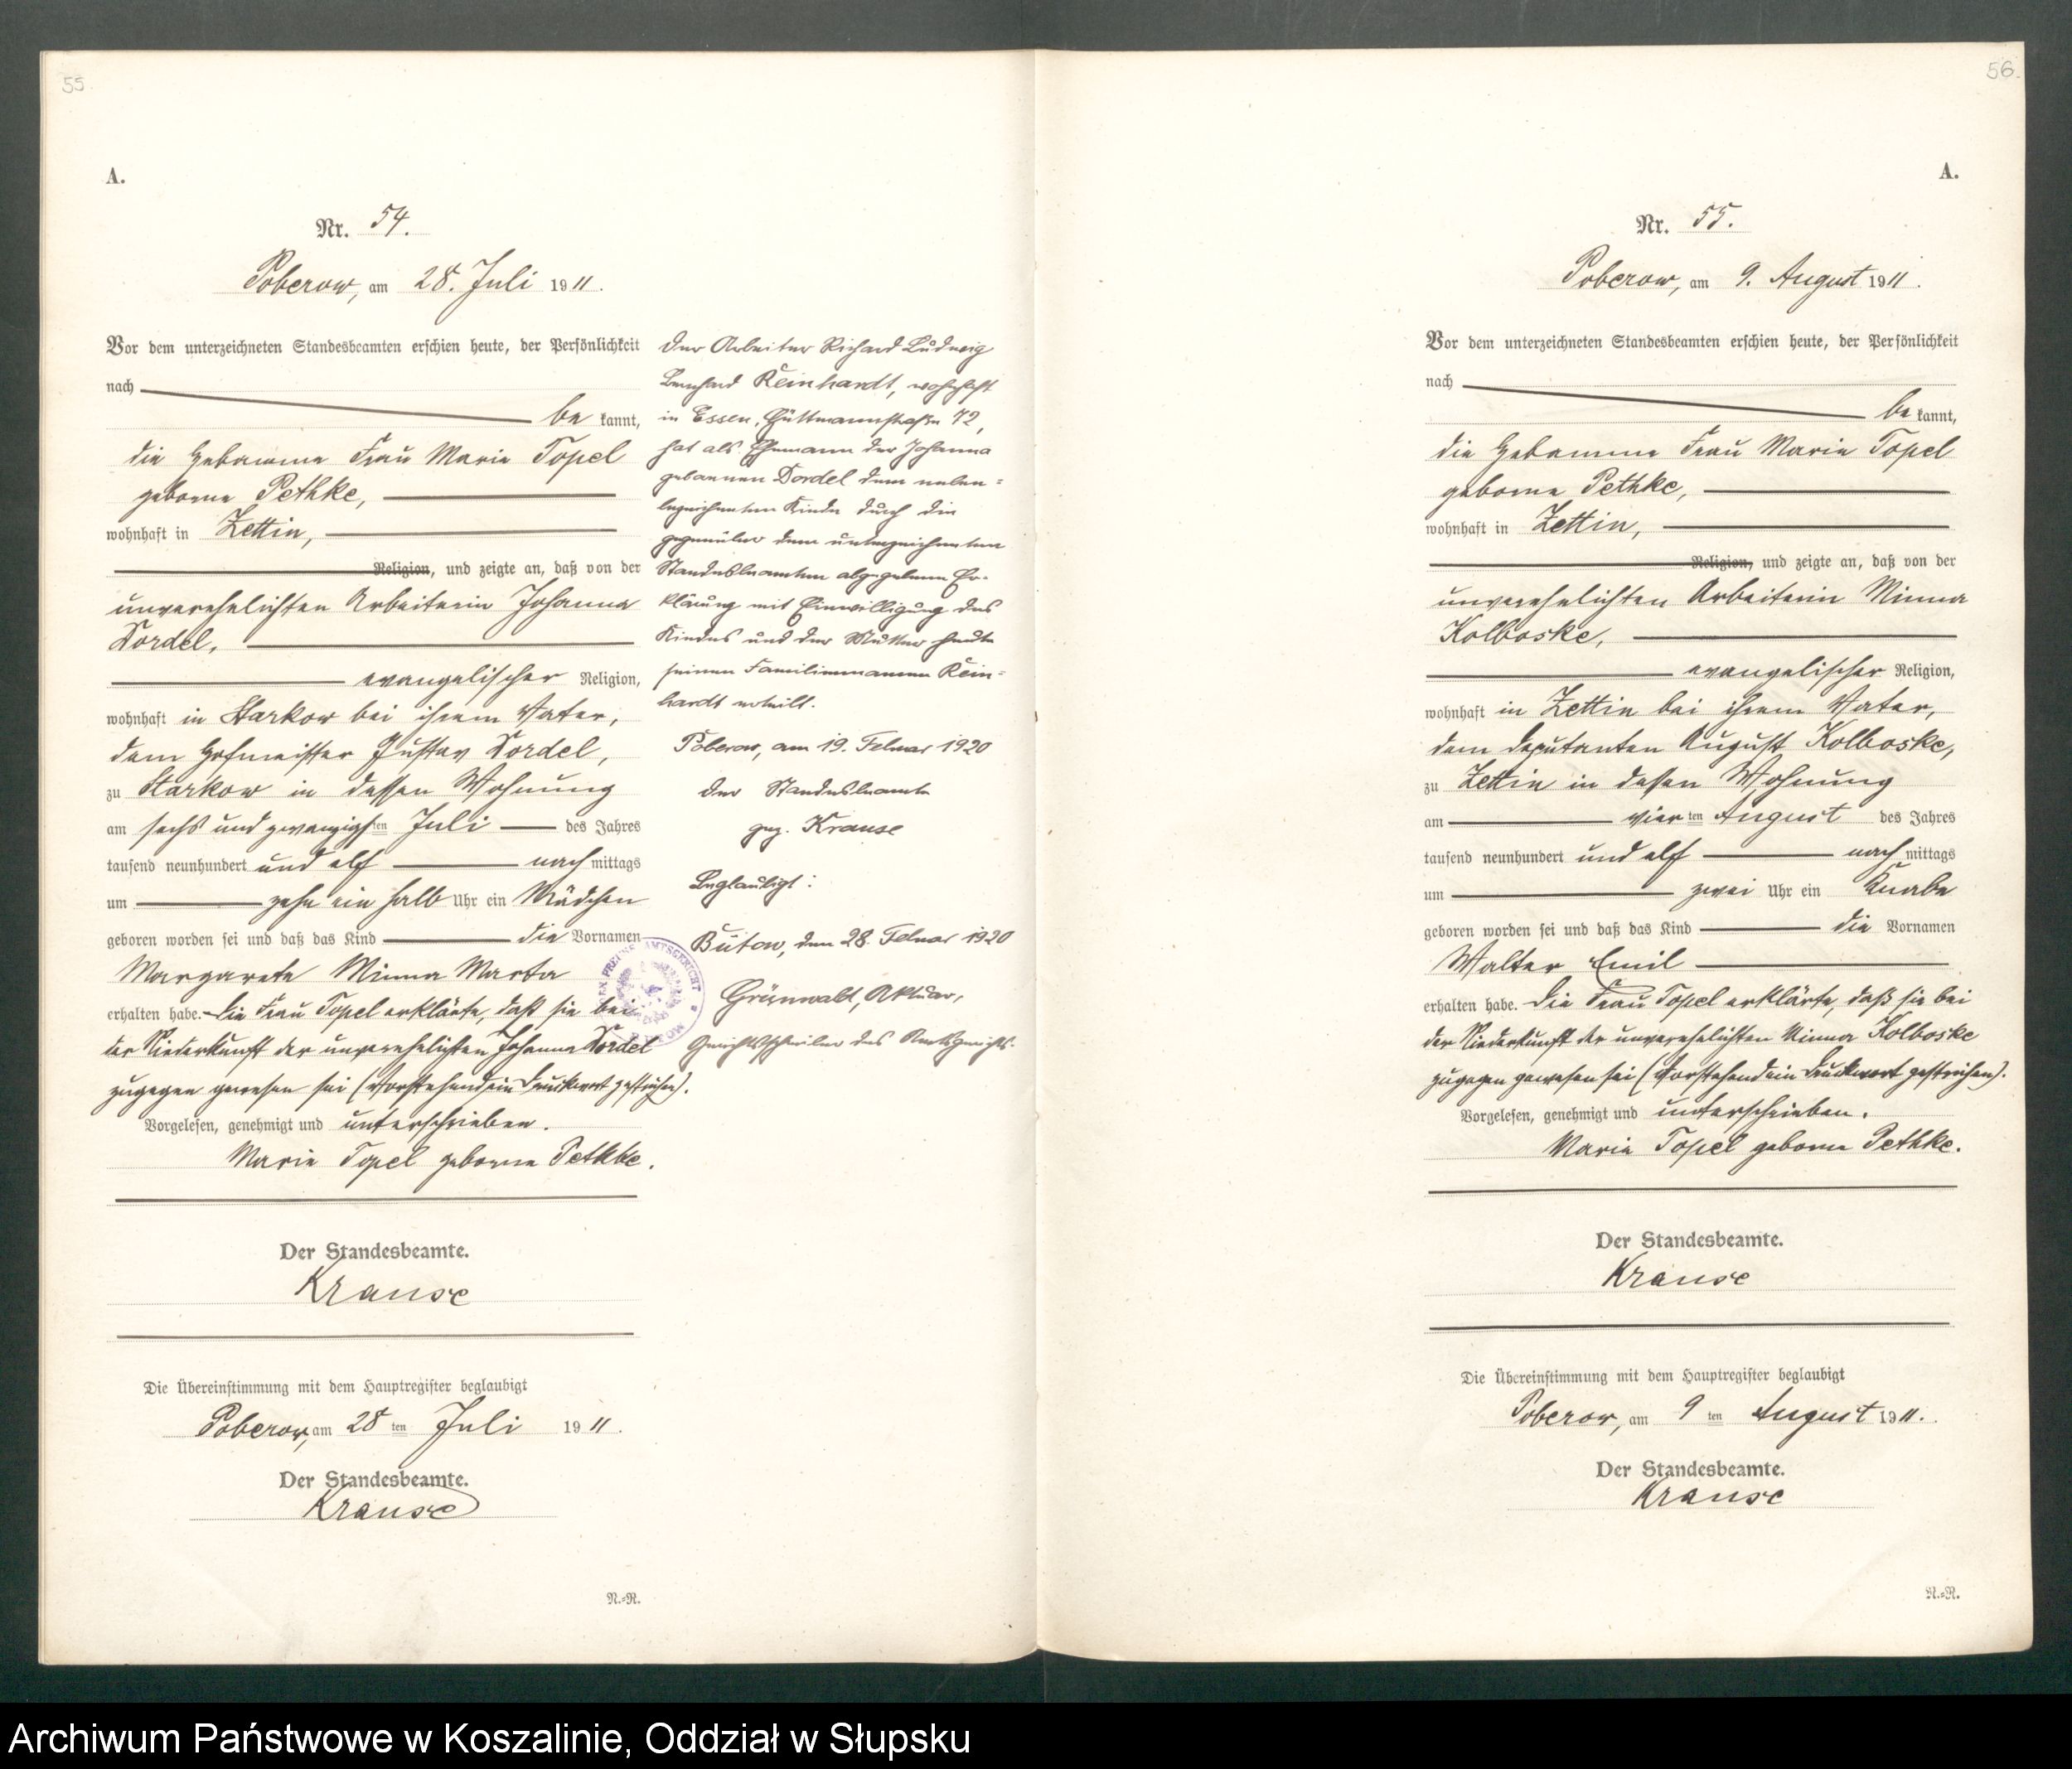 55.
A.
Nr. 54.
Poberow, am 28. Juli 1911.
Vor dem unterzeichneten Standesbeamten erschien heute, der Persönlichkeit
nach
be kannt,
die Hebamme Frau Marie Topel
geborne Pethke,
wohnhaft in Zettin,
Religion, und zeigte an, daß von der
unverehelichten Arbeiterin Johanna
Dordel,
evangelischer Religion,
wohnhaft in Starkow bei ihrem Vater,
dem Hofmeister Gustav Dordel,
zu Starkow in dessen Wohnung
am sechs und zwanzigsten Juli des Jahres
tausend neunhundert und elf nachmittags
um zehn ein halb Uhr ein Mädchen
geboren worden sei und daß das Kind die Vornamen
Margarete Minna Marta
erhalten habe. Die Frau Topel erklärte, daß sie bei
der Niederkunft der unverehelichten Johanna Dordel
zugegen gewesen sei (Vorstehend ein Druckwort gestrichen).
Vorgelesen, genehmigt und unterschrieben.
Marie Topel geborne Pethke.
Der Standesbeamte.
Krause
Die Übereinstimmung mit dem Hauptregister beglaubigt
Poberow, am 28 ten Juli 1911.
Der Standesbeamte.
Krause
N.=R.
Der Arbeiter Richard Ludwig
Bernhard Reinhardt, wohnhaft
in Essen, Hüttmannstraße 72,
hat als Ehemann der Johanna
geborenen Dordel dem neben=
bezeichneten Kinde durch die
gegenüber dem unterzeichneten
Standesbeamten abgegebene Er-
klärung mit Einwilligung des
Kindes und der Mutter heute
seinen Familiennamen Rein=
hardt erteilt.
Poberow, am 19. Februar 1920
Der Standesbeamte
gez. Krause
Beglaubigt:
Bütow, den 28. Februar 1920
Grünwaldt, Aktuar,
Gerichtsschreiber des Amtsgerichts.
56.
A.
Nr. 55.
Poberow, am 9. August 1911.
Vor dem unterzeichneten Standesbeamten erschien heute, der Persönlichkeit
nach
be kannt,
die Hebamme Frau Marie Topel
geborne Pethke,
wohnhaft in Zettin,
Religion, und zeigte an, daß von der
unverehelichten Arbeiterin Minna
Kolboske,
evangelischer Religion,
wohnhaft in Zettin bei ihrem Vater,
dem Deputanten August Kolboske,
zu Zettin in dessen Wohnung
am vierten August des Jahres
tausend neunhundert und elf nachmittags
um zwei Uhr ein Knabe
geboren worden sei und daß das Kind die Vornamen
Walter Emil
erhalten habe. Die Frau Topel erklärte, daß sie bei
der Niederkunft der unverehelichten Minna Kolboske
zugegen gewesen sei (Vorstehend ein Druckwort gestrichen).
Vorgelesen, genehmigt und unterschrieben.
Marie Topel geborne Pethke.
Der Standesbeamte.
Krause
Die Übereinstimmung mit dem Hauptregister beglaubigt
Poberow, am 9 ten August 1911.
Der Standesbeamte.
Krause
N.=R.
Archiwum Państwowe w Koszalinie, Oddział w Słupsku